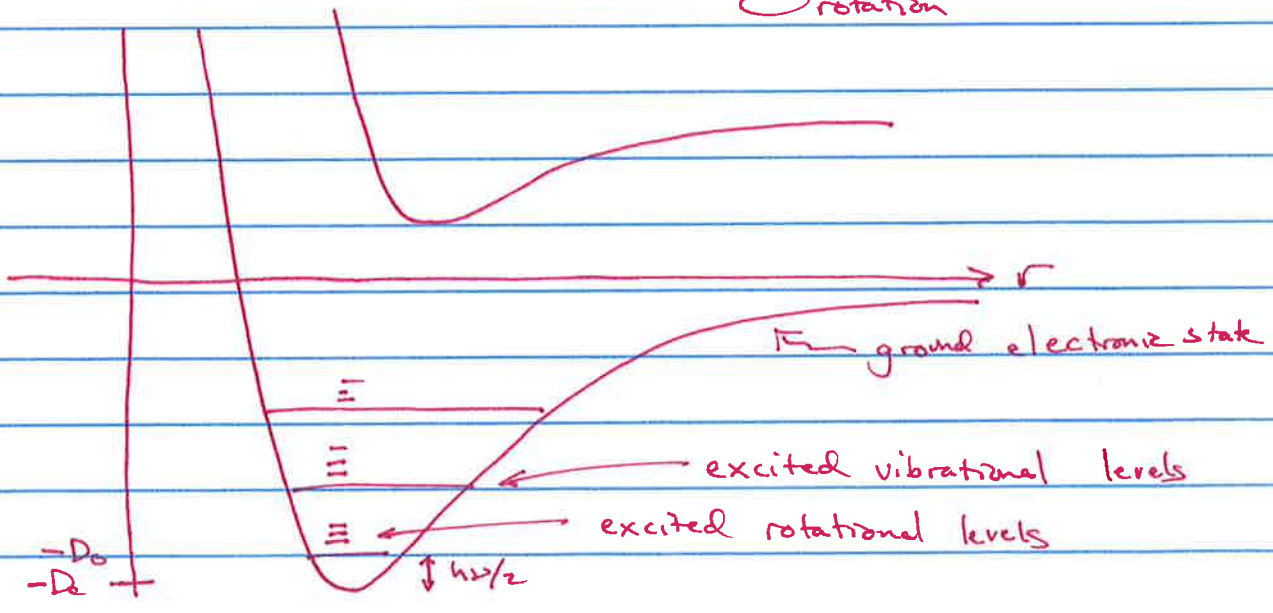 rotation
r
ground electronic state
excited vibrational levels
excited rotational levels
-D₀
-Dₑ
hν/2